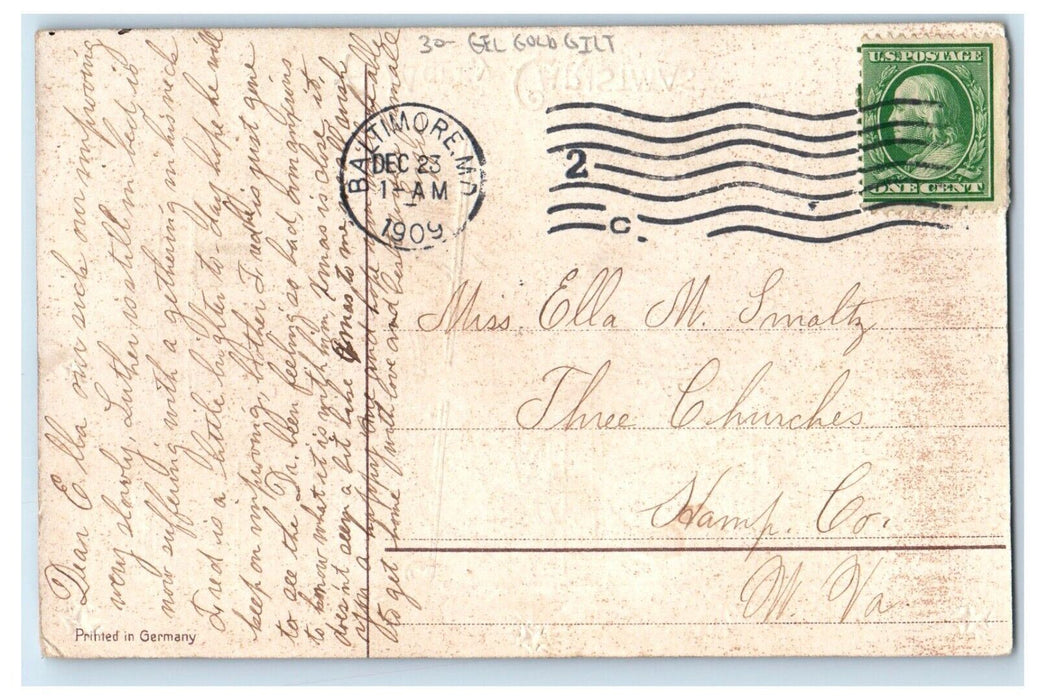 30- GEL GOLD GILT
CHRISTMAS
U.S. POSTAGE
ONE CENT
BALTIMORE, MD.
DEC 23
1- AM
1909
2
C.
Miss Ella M. Smaltz
Three Churches
Hamp. Co.
W. Va.
Dear Ella our sick our improving
very slowly, Luther is still in bed, is
now suffering with a gethering in his neck
Fred is a little brighter to day hope he will
keep on improving, Bother I red is just gone
to see the Dr. been feeling so bad, am anxious
to know what it is with him Xmas is close it
does'nt seem a bit like Xmas to me,
a happy one and hope
to get home with love and best
Printed in Germany